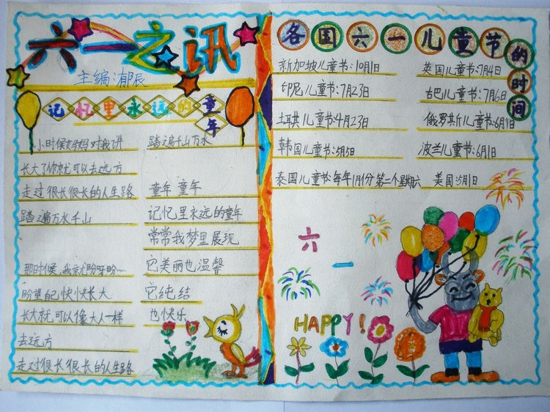 六一之讯
主编:郁辰
记忆里永远的童年
小时候老妈对我讲
长大了你就可以去远方
走过很长很长的人生路
踏遍万水千山
那时候,我亲人盼呀盼
盼望自己快快长大
长大就可以像大人一样
去远方
走过很长很长的人生路
踏遍千山万水
童年 童年
记忆里永远的童年
常常我梦里展现
它美丽也温馨
它纯结
也快乐
各国六一儿童节的时间
新加坡儿童节:10月1日
英国儿童节:7月14日
印尼儿童节:7月23日
古巴儿童节:7月6日
土耳其儿童节4月23日
俄罗斯儿童节:6月1日
韩国儿童节:5月5日
波兰儿童节:6月1日
泰国儿童节:每年1月份第二个星期六
美国:5月1日
六一
HAPPY!